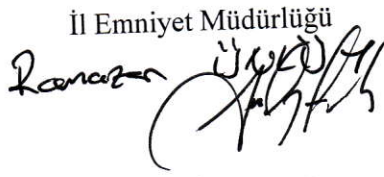 İl Emniyet Müdürlüğü
Ramazan